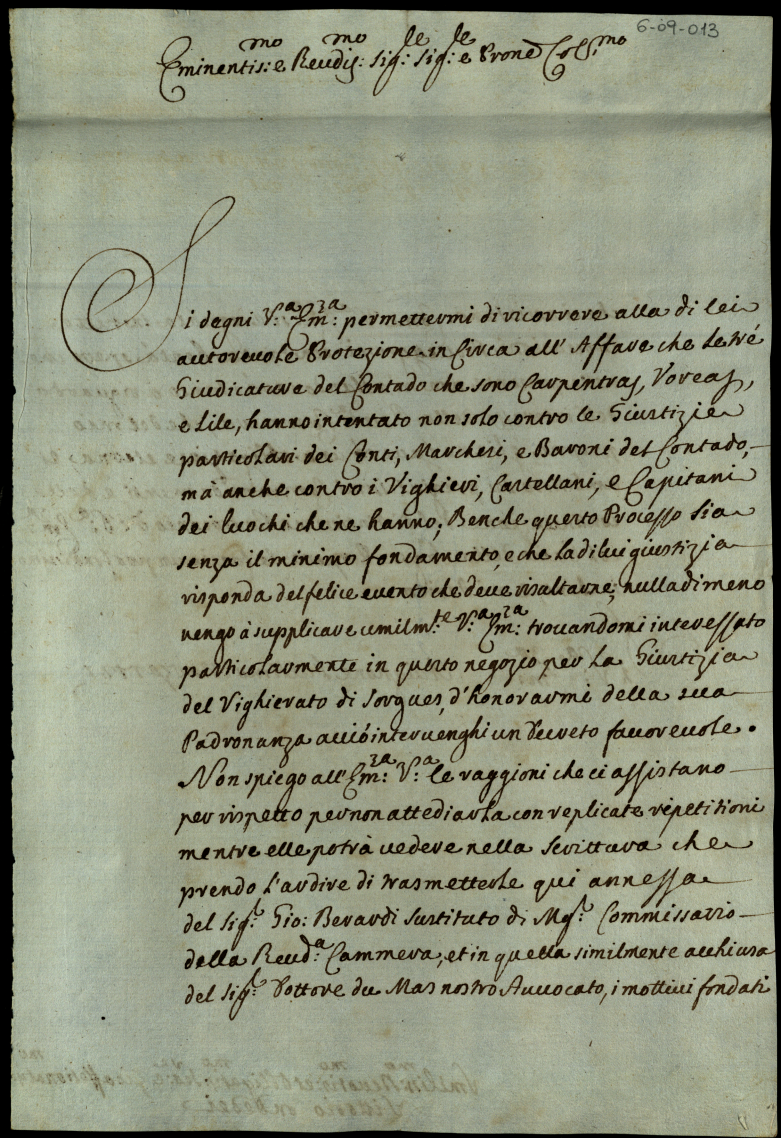 6-09-013
Eminentis:mo e Reudis:mo Sig:le Sig:le e Prone Col:mo
Si degni V:a Em:za permettermi di ricorrere alla di lei
autoreuole Protezione in Circa all' Affare che le tré
Giudicature del Contado che sono Carpentras, Voreas,
e Lile, hanno intentato non solo contro le Giustizie
particolari dei Conti, Marchesi, e Baroni del Contado,
mà anche contro i Vighieri, Castellani, e Capitani
dei luochi che ne hanno; Benche questo Processo sia
senza il minimo fondamento, e che la di lui giustizia
risponda del felice euento che deue risultarne; nulladimeno
uengo à supplicare umilm:te V:a Em:za trouandomi interessato
particolarmente in questo negozio per la Giustizia
del Vighierato di Sorgues, d'honorarmi della sua
Padronanza acciò interuenghi un Decreto fauoreuole.
Non spiego all' Em:za V:a le raggioni che ci assistano
per rispetto per non attediarla con replicate repetitioni
mentre elle potrà uedere nella Scrittura che
prendo l'ardire di trasmetterle qui annessa
del Sig:r Gio: Berardi sustituto di Mg:r Commissario
della Reud:a Cammera, et in quella similmente acchiusa
del Sig:r Dottore du Mas nostro Auuocato, i mottiui fondati